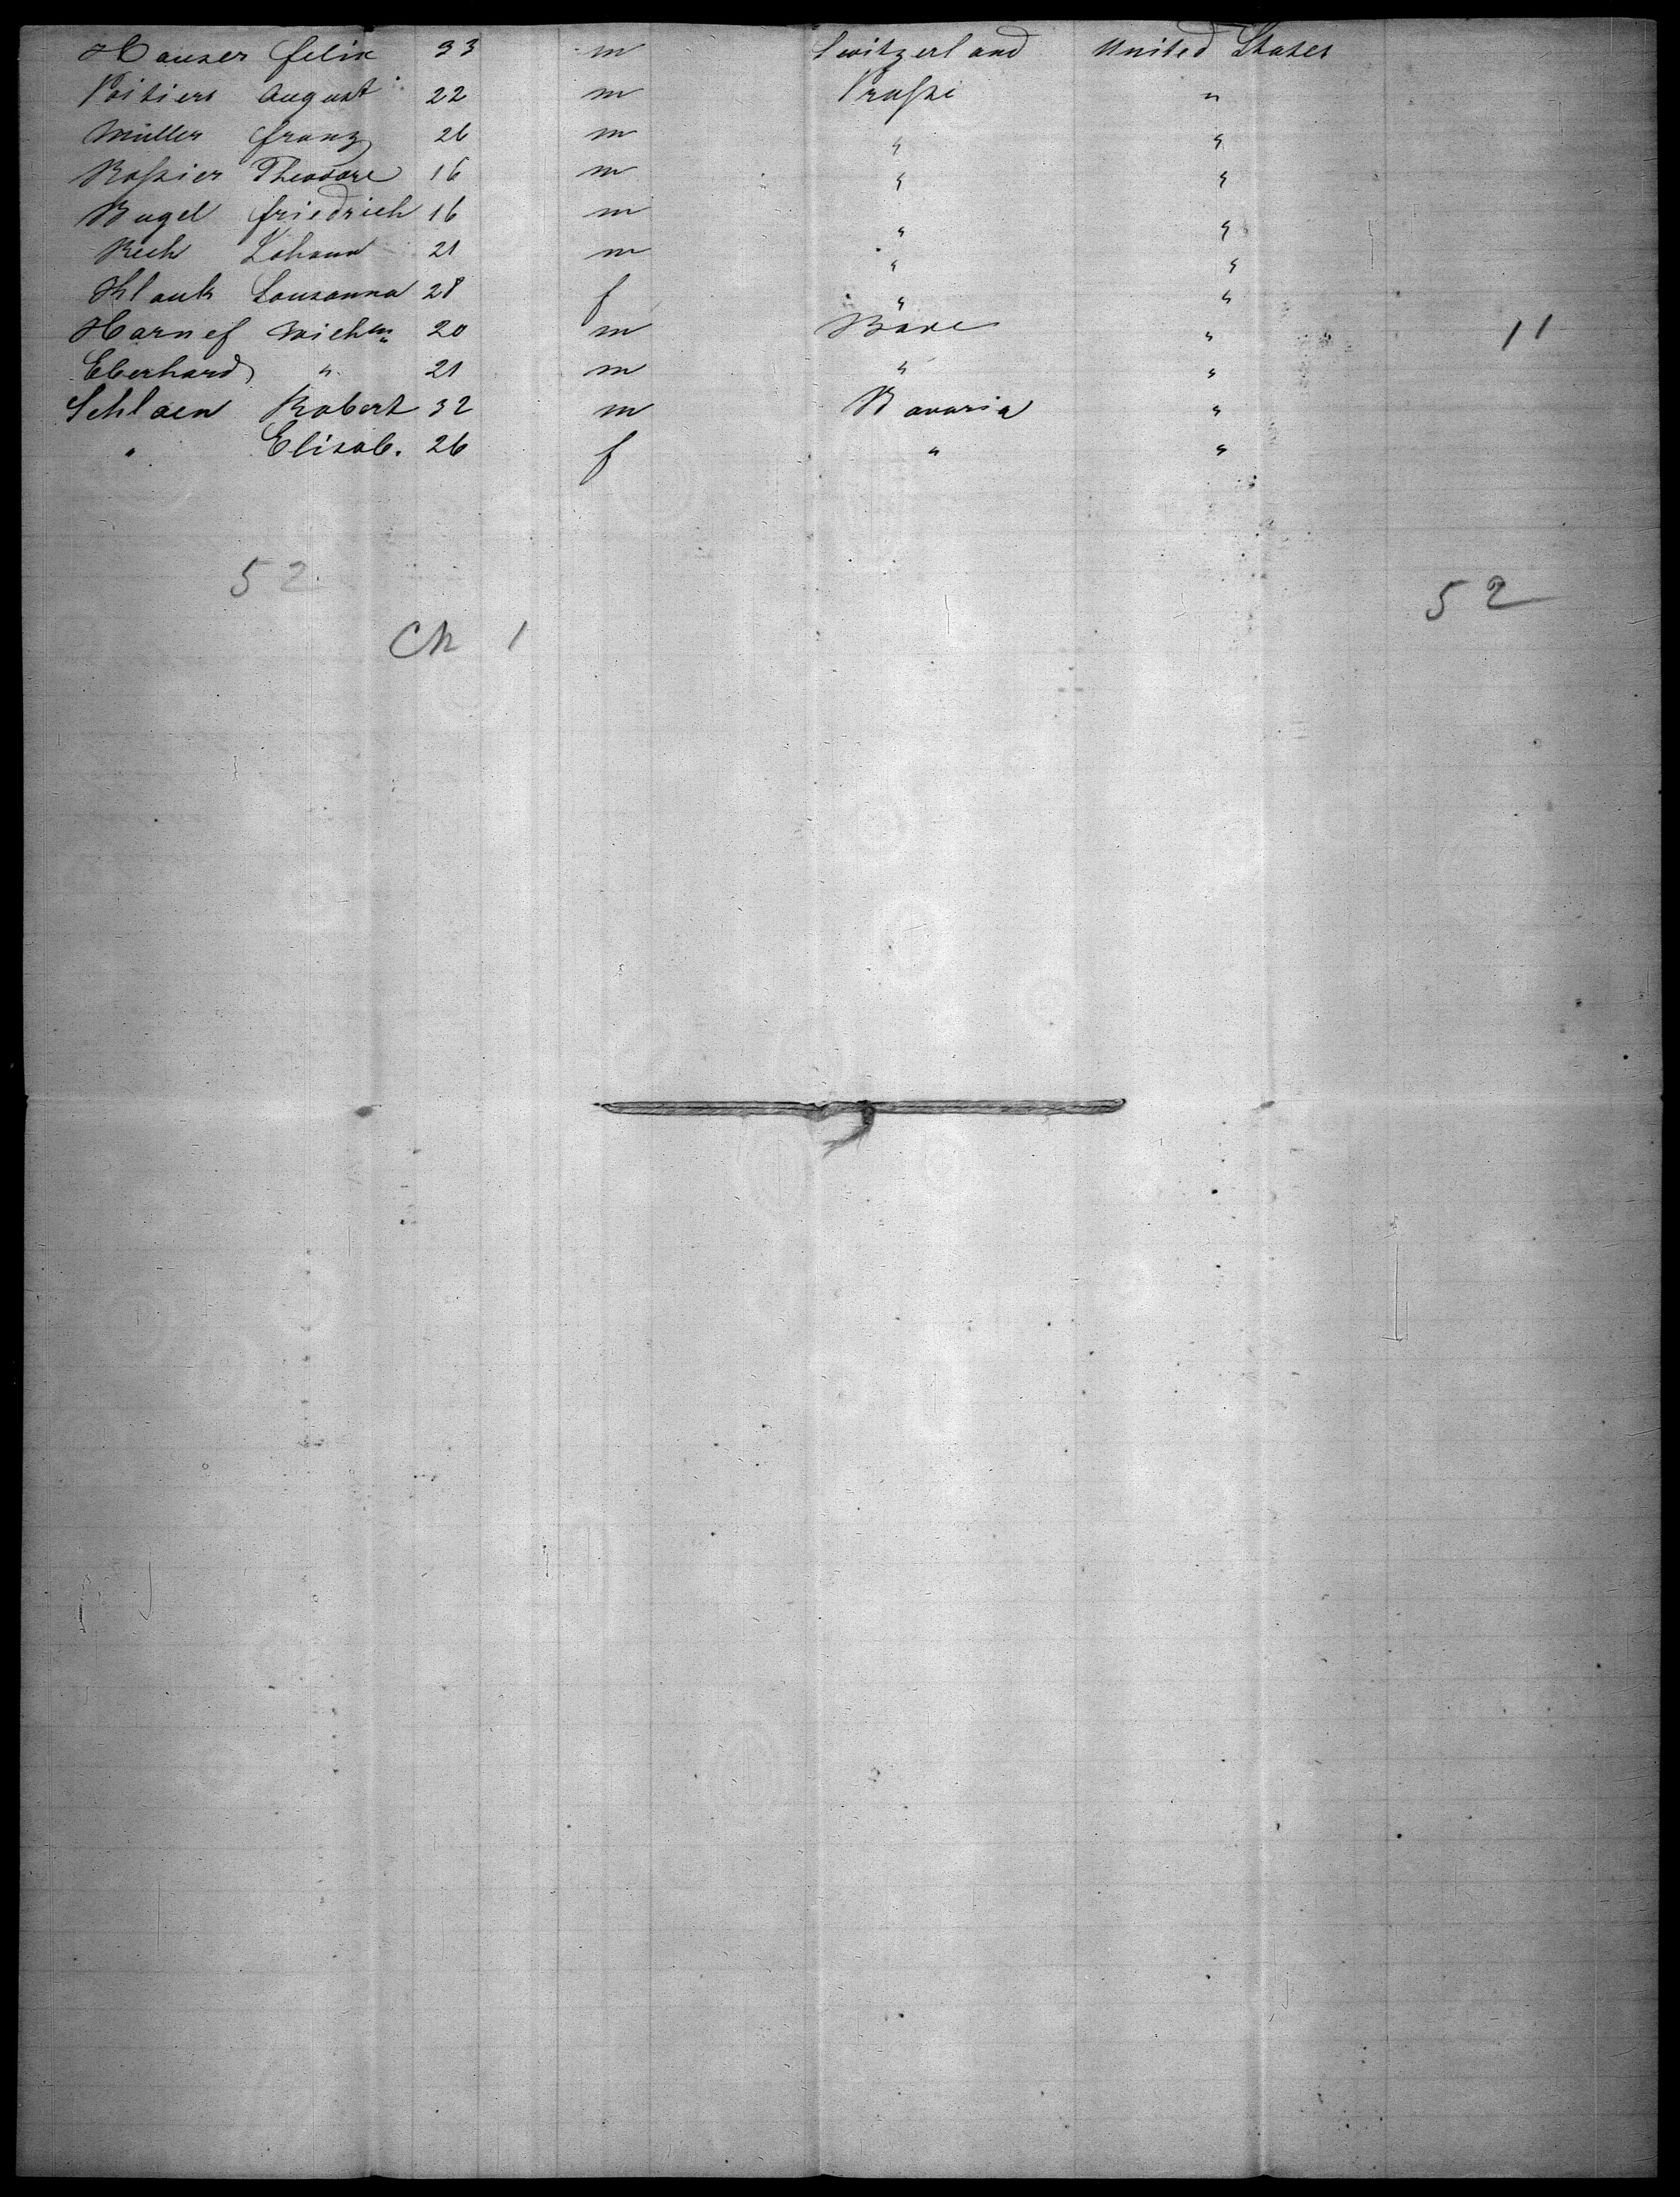 Hauser Felix 33 m Switzerland United States
Poitiers August 22 m Prussi "
Müller Franz 26 m " "
Rossier Theodore 16 m " "
Bugel Friedrich 16 m " "
Rech Johann 21 m " "
Lousanna 28 f " "
Harnef 20 m Bade " 11
Eberhard " 21 m " "
Schlaen Robert 32 m Bavaria "
" Elisab. 26 f " "
52 52
Ch 1